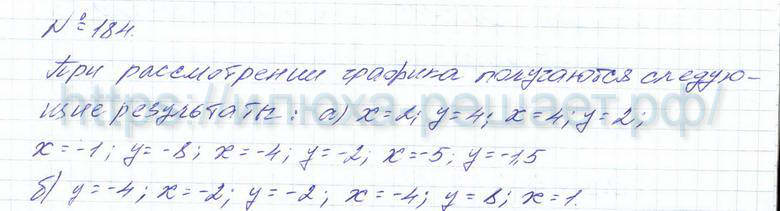 №184.
При рассмотрении графика получаются следую-
щие результаты: а) x=2; y=4; x=4; y=2;
x=-1; y=-8; x=-4; y=-2; x=-5; y=-1,5
б) y=-4; x=-2; y=-2; x=-4; y=8; x=1.
https://илюха-решает.рф/